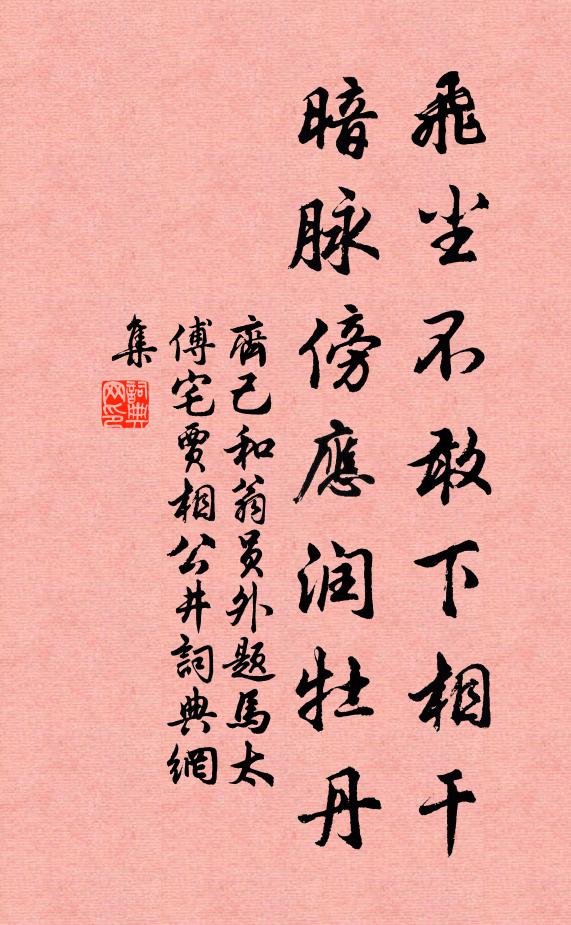 飛尘不敢下相干
暗脉傍應润牡丹
齊己和翁員外题馬太
傅宅賈相公井詞典網
集
詞典
网印